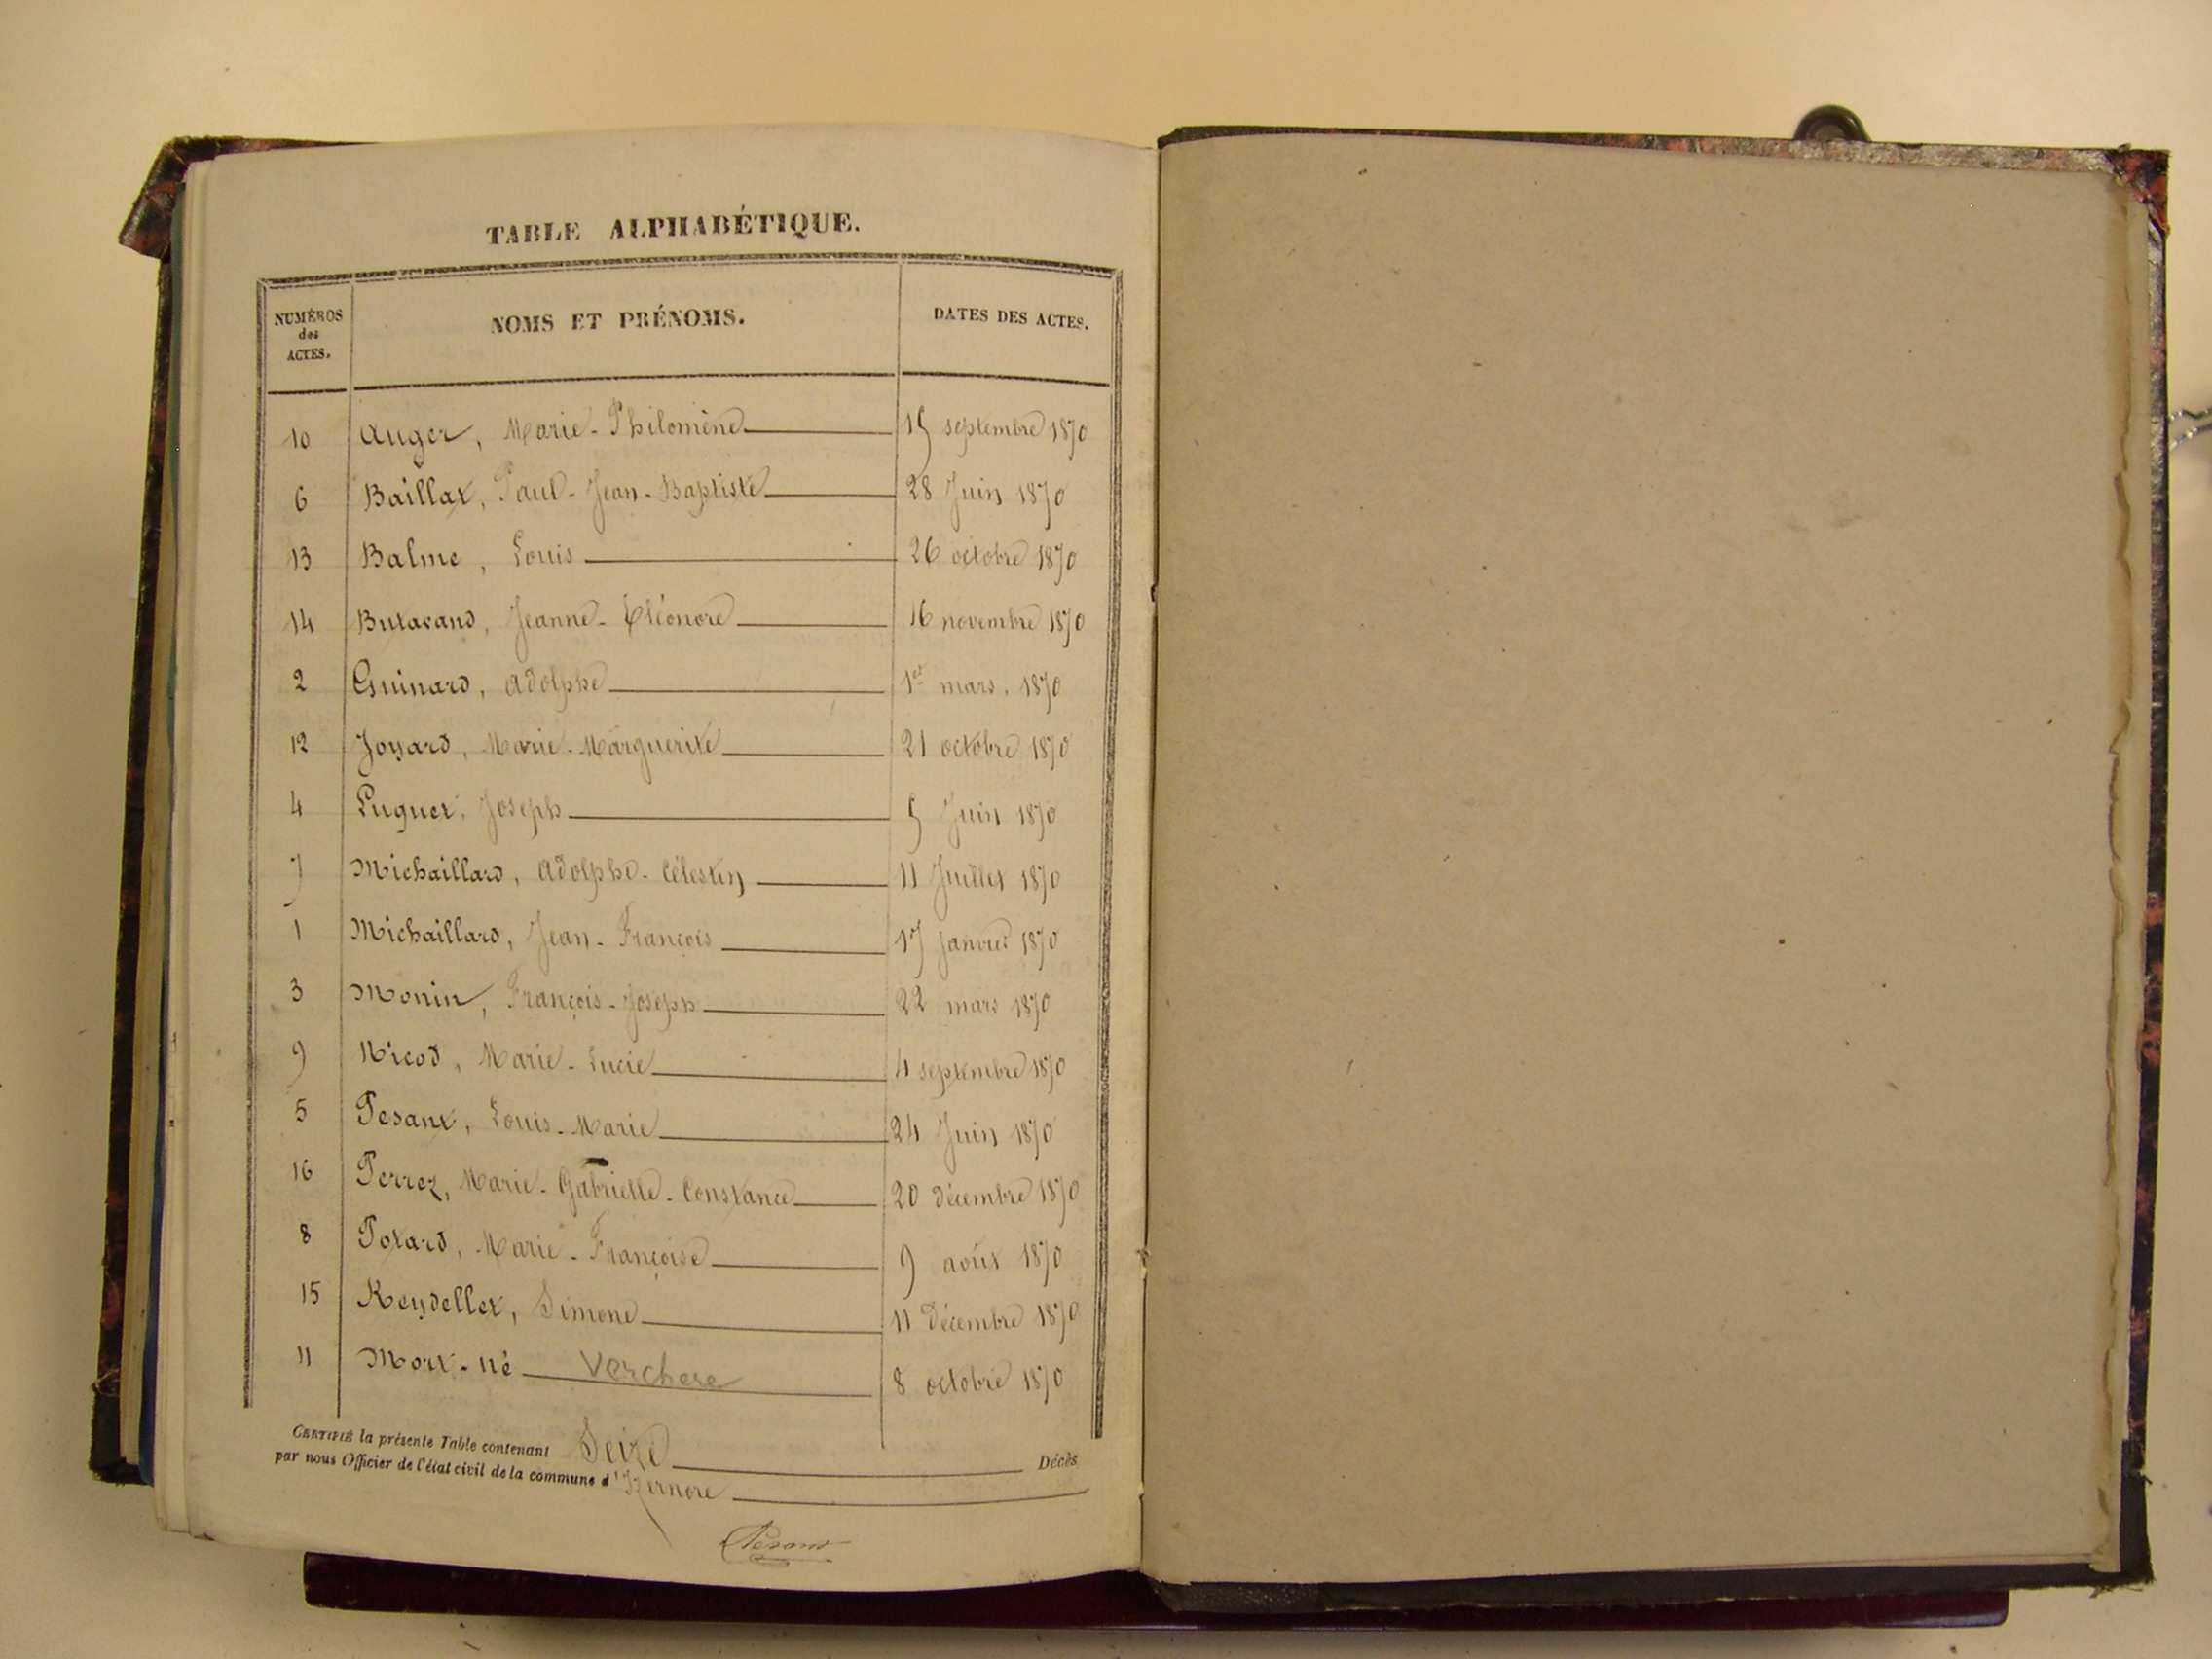 TABLE ALPHABÉTIQUE.
NUMÉROS des ACTES. NOMS ET PRÉNOMS. DATES DES ACTES.
10 Auger, Marie-Philomène 15 septembre 1870
6 Baillat, Paul-Jean-Baptiste 28 Juin 1870
13 Balme, Louis 26 octobre 1870
14 Butavand, Jeanne-Eléonore 16 novembre 1870
2 Guinard, Adolphe 1er mars 1870
12 Joyard, Marie-Marguerite 21 octobre 1870
4 Luguet, Joseph 5 Juin 1870
7 Michaillard, Adolphe-Célestin 11 Juillet 1870
1 Michaillard, Jean-François 17 janvier 1870
3 Monin, François-Joseph 22 mars 1870
9 Nicod, Marie-Lucie 4 septembre 1870
5 Pesant, Louis-Marie 24 Juin 1870
16 Perrez, Marie-Gabrielle-Constance 20 décembre 1870
8 Potard, Marie-Françoise 9 août 1870
15 Reydellet, Simone 11 décembre 1870
11 Mort-né Verchere 8 octobre 1870
CERTIFIÉ la présente Table contenant Seize Décès
par nous Officier de l'état civil de la commune d'Izernore